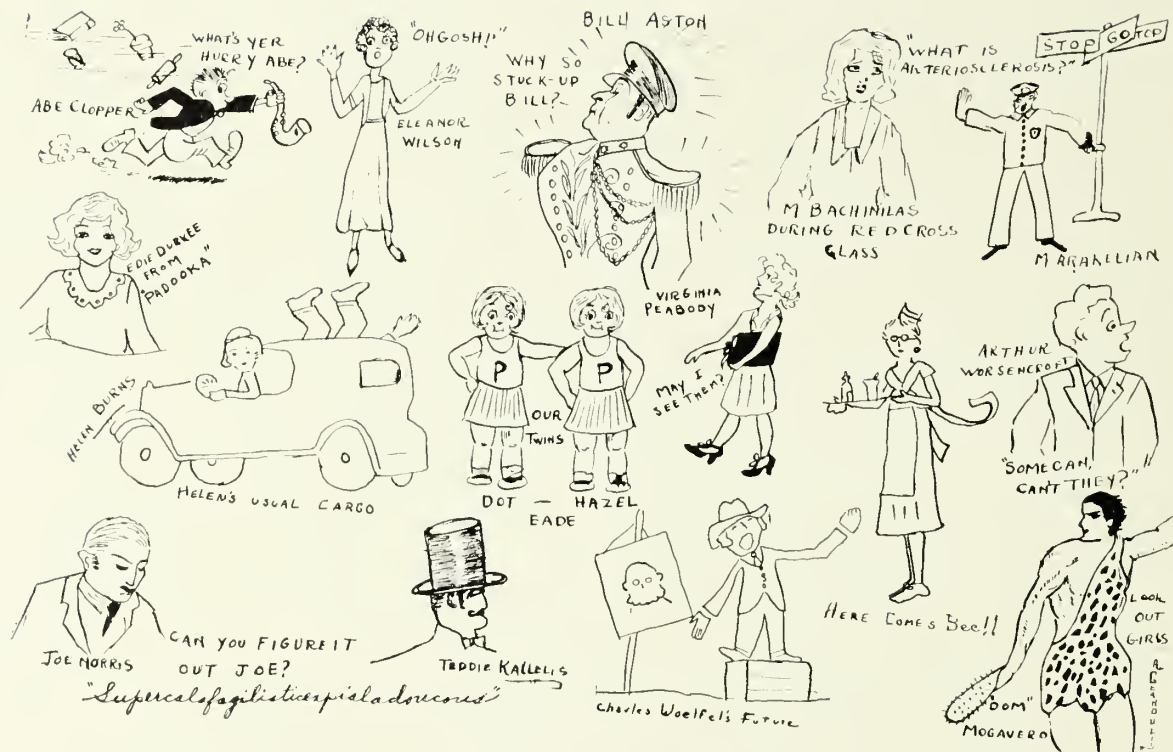 WHAT'S YER
HURRY ABE?
ABE CLOPPER
"OH GOSH!!"
ELEANOR
WILSON
BILL ASTON
WHY SO
STUCK-UP
BILL?
"WHAT IS
ARTERIOSCLEROSIS?"
M BACHINILAS
DURING RED CROSS
CLASS
STOP GO TOP
M ARAKELIAN
EDIE DURKEE
FROM
"PADOOKA"
HELEN BURNS
HELEN'S USUAL CARGO
P
P
OUR
TWINS
DOT — HAZEL
EADE
VIRGINIA
PEABODY
MAY I
SEE THEM?
HERE COMES BEE!!
ARTHUR
WORSENCROFT
"SOME CAN,
CAN'T THEY?"
JOE NORRIS
CAN YOU FIGURE IT
OUT JOE?
"Supercalafagilisticexpialadoucous"
TEDDIE KALLELIS
Charles Woelfel's Future
LOOK
OUT
GIRLS
"DOM"
MOGAVERO